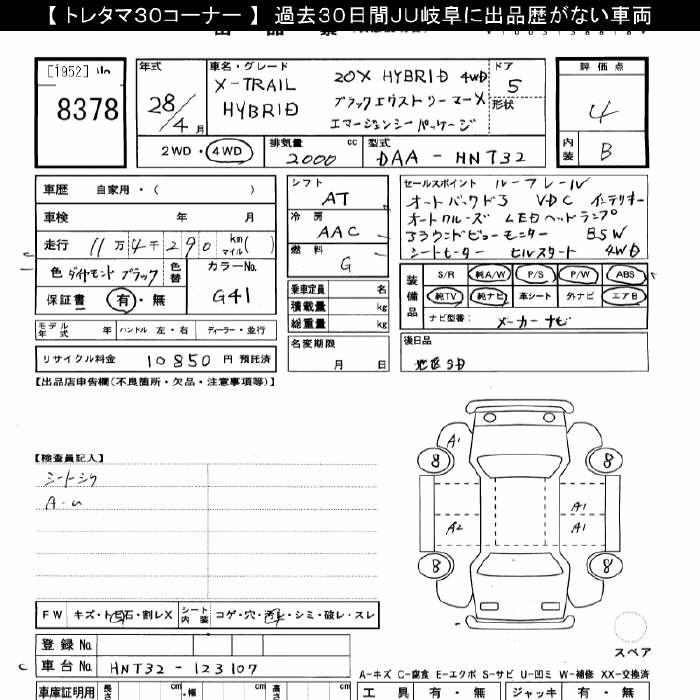 【 トレタマ30コーナー 】 過去30日間JU岐阜に出品歴がない車両
[1952]
8378
年式
28/4 月
車名・グレード
X-TRAIL 20X HYBRID 4WD
HYBRID ブラックエクストリーマーX
エマージェンシーパッケージ
ドア
5
形状
評価点
4
内装
B
2WD・4WD
排気量
2000 cc
型式
DAA - HNT32
車歴 自家用・( )
車検 年 月
走行 11万4千290 km マイル( )
色 ダイヤモンドブラック 色替
カラーNo.
G41
保証書 有・無
モデル年式 年 ハンドル 左・右 ディーラー・並行
リサイクル料金 10850 円 預託済
シフト
AT
冷房
AAC
燃料
G
乗車定員 名
積載量 kg
総重量 kg
名変期限
月 日
セールスポイント ルーフレール
オートバックドア VDC インテリキー
オートクルーズ LEDヘッドランプ
アラウンドビューモニター BSW
シートヒーター ヒルスタート 4WD
装備品
S/R 純A/W P/S P/W ABS
純TV 純ナビ 革シート 外ナビ エアB
ナビ型番: メーカーナビ
後日品
【出品店申告欄(不良箇所・欠品・注意事項等)】
【検査員記入】
シートシワ
A-U
A1
8
8
A1
A2
A1
8
8
スペア
FW キズ・トビ石・割レX シート内装 コゲ・穴・汚レ・シミ・破レ・スレ
登録 No.
車台 No. HNT32 - 123107
A-キズ C-腐食 E-エクボ S-サビ U-凹ミ W-補修 XX-交換済
車庫証明用 長さ cm ・幅 cm 高さ cm
工具 有・無 ジャッキ 有・無